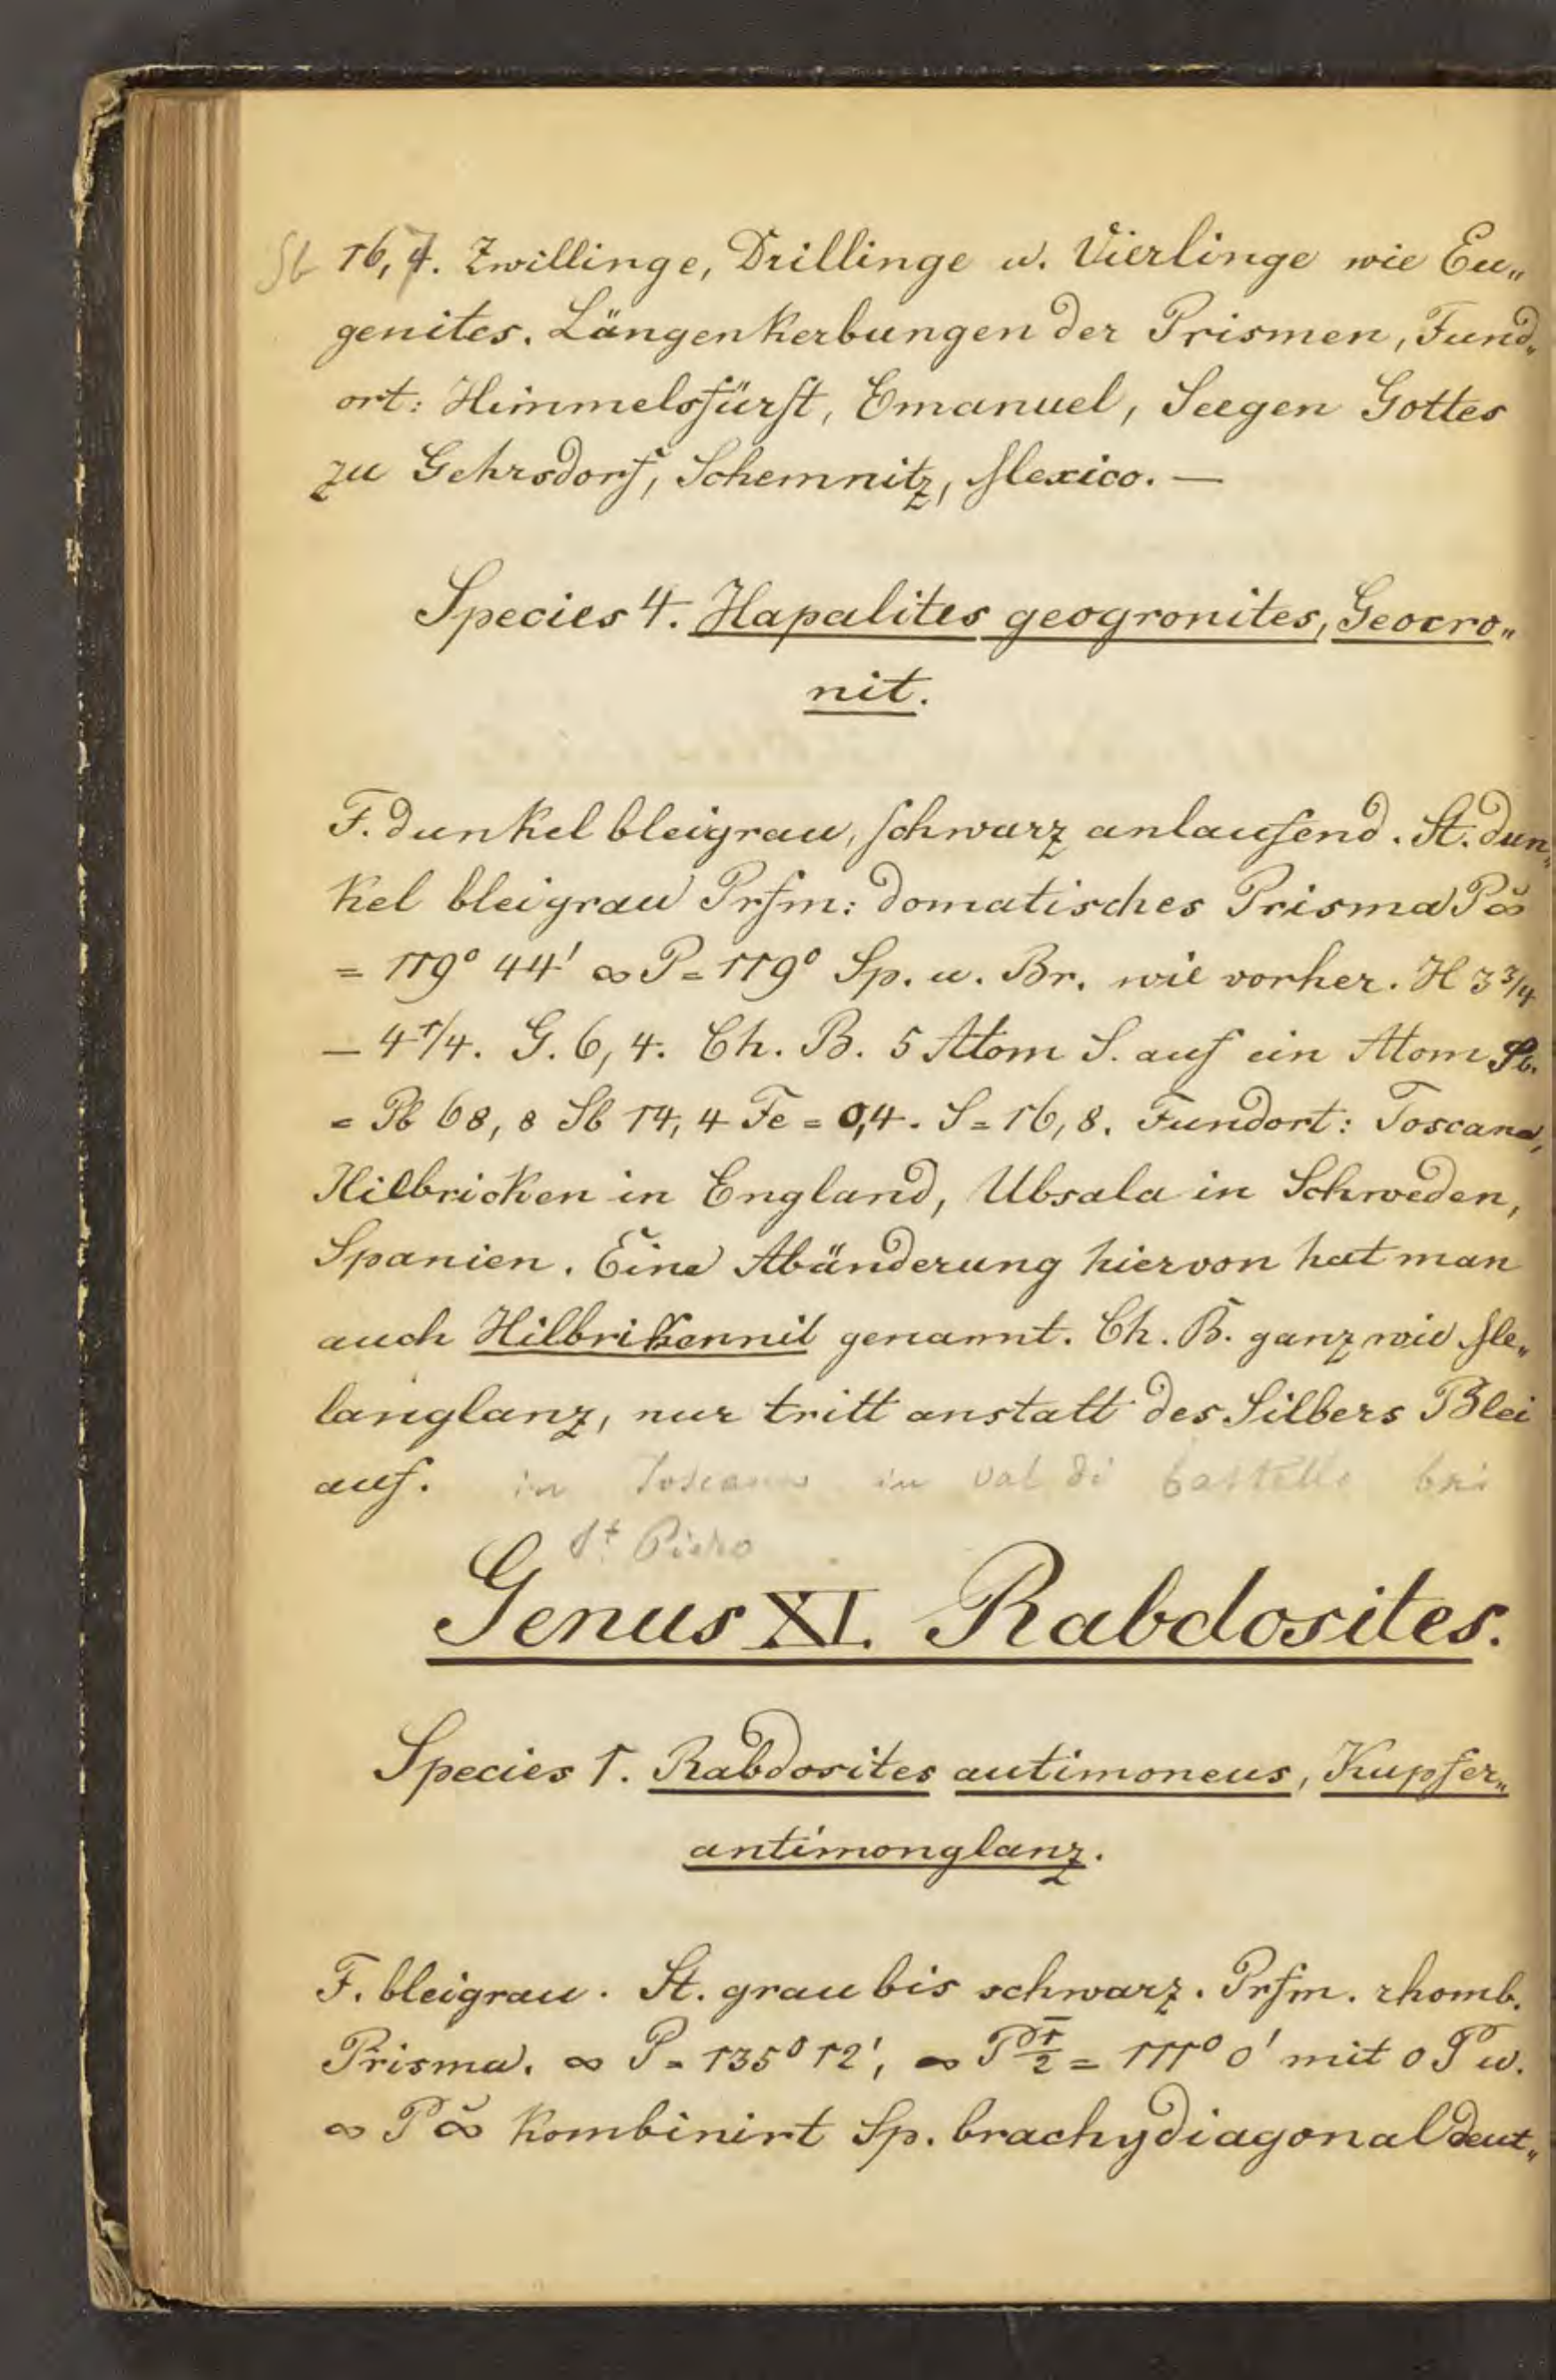 Sb 16,7. Zwillinge, Drillinge u. Vierlinge wie Eu„
genites. Längenkerbungen der Prismen, Fund„
ort: Himmelsfürst, Emanuel, Seegen Gottes
zu Gehrsdorf, Schemnitz, Mexico. —
Species 4. Hapalites geogronites, Geocro„
nit.
F. dunkel bleigrau, schwarz anlaufend. St. dun„
kel bleigrau Prfm: domatisches Prisma P∞̆
= 119° 44' ∞ P = 119° Sp. u. Br. wie vorher. H 3 3/4
— 4 1/4. G. 6,4. Ch. B. 5 Atom S. auf ein Atom Sb.
= Pb 68,8 Sb 14,4 Fe = 0,4. S = 16,8. Fundort: Toscana,
Hilbricken in England, Ubsala in Schweden,
Spanien. Eine Abänderung hiervon hat man
auch Hilbrikennit genannt. Ch. B. ganz wie Me„
langlanz, nur tritt anstatt des Silbers Blei
auf. in Toscana in Val di Castello bei
St Piero
Genus XI. Rabdosites.
Species 1. Rabdosites autimoneus, Kupfer„
antimonglanz.
F. bleigrau. St. grau bis schwarz. Prfm. rhomb.
Prisma. ∞ P = 135° 12', ∞ P 1̅/2 = 111° 0' mit 0 P u.
∞ P ∞̆ kombinirt Sp. brachydiagonal deut„